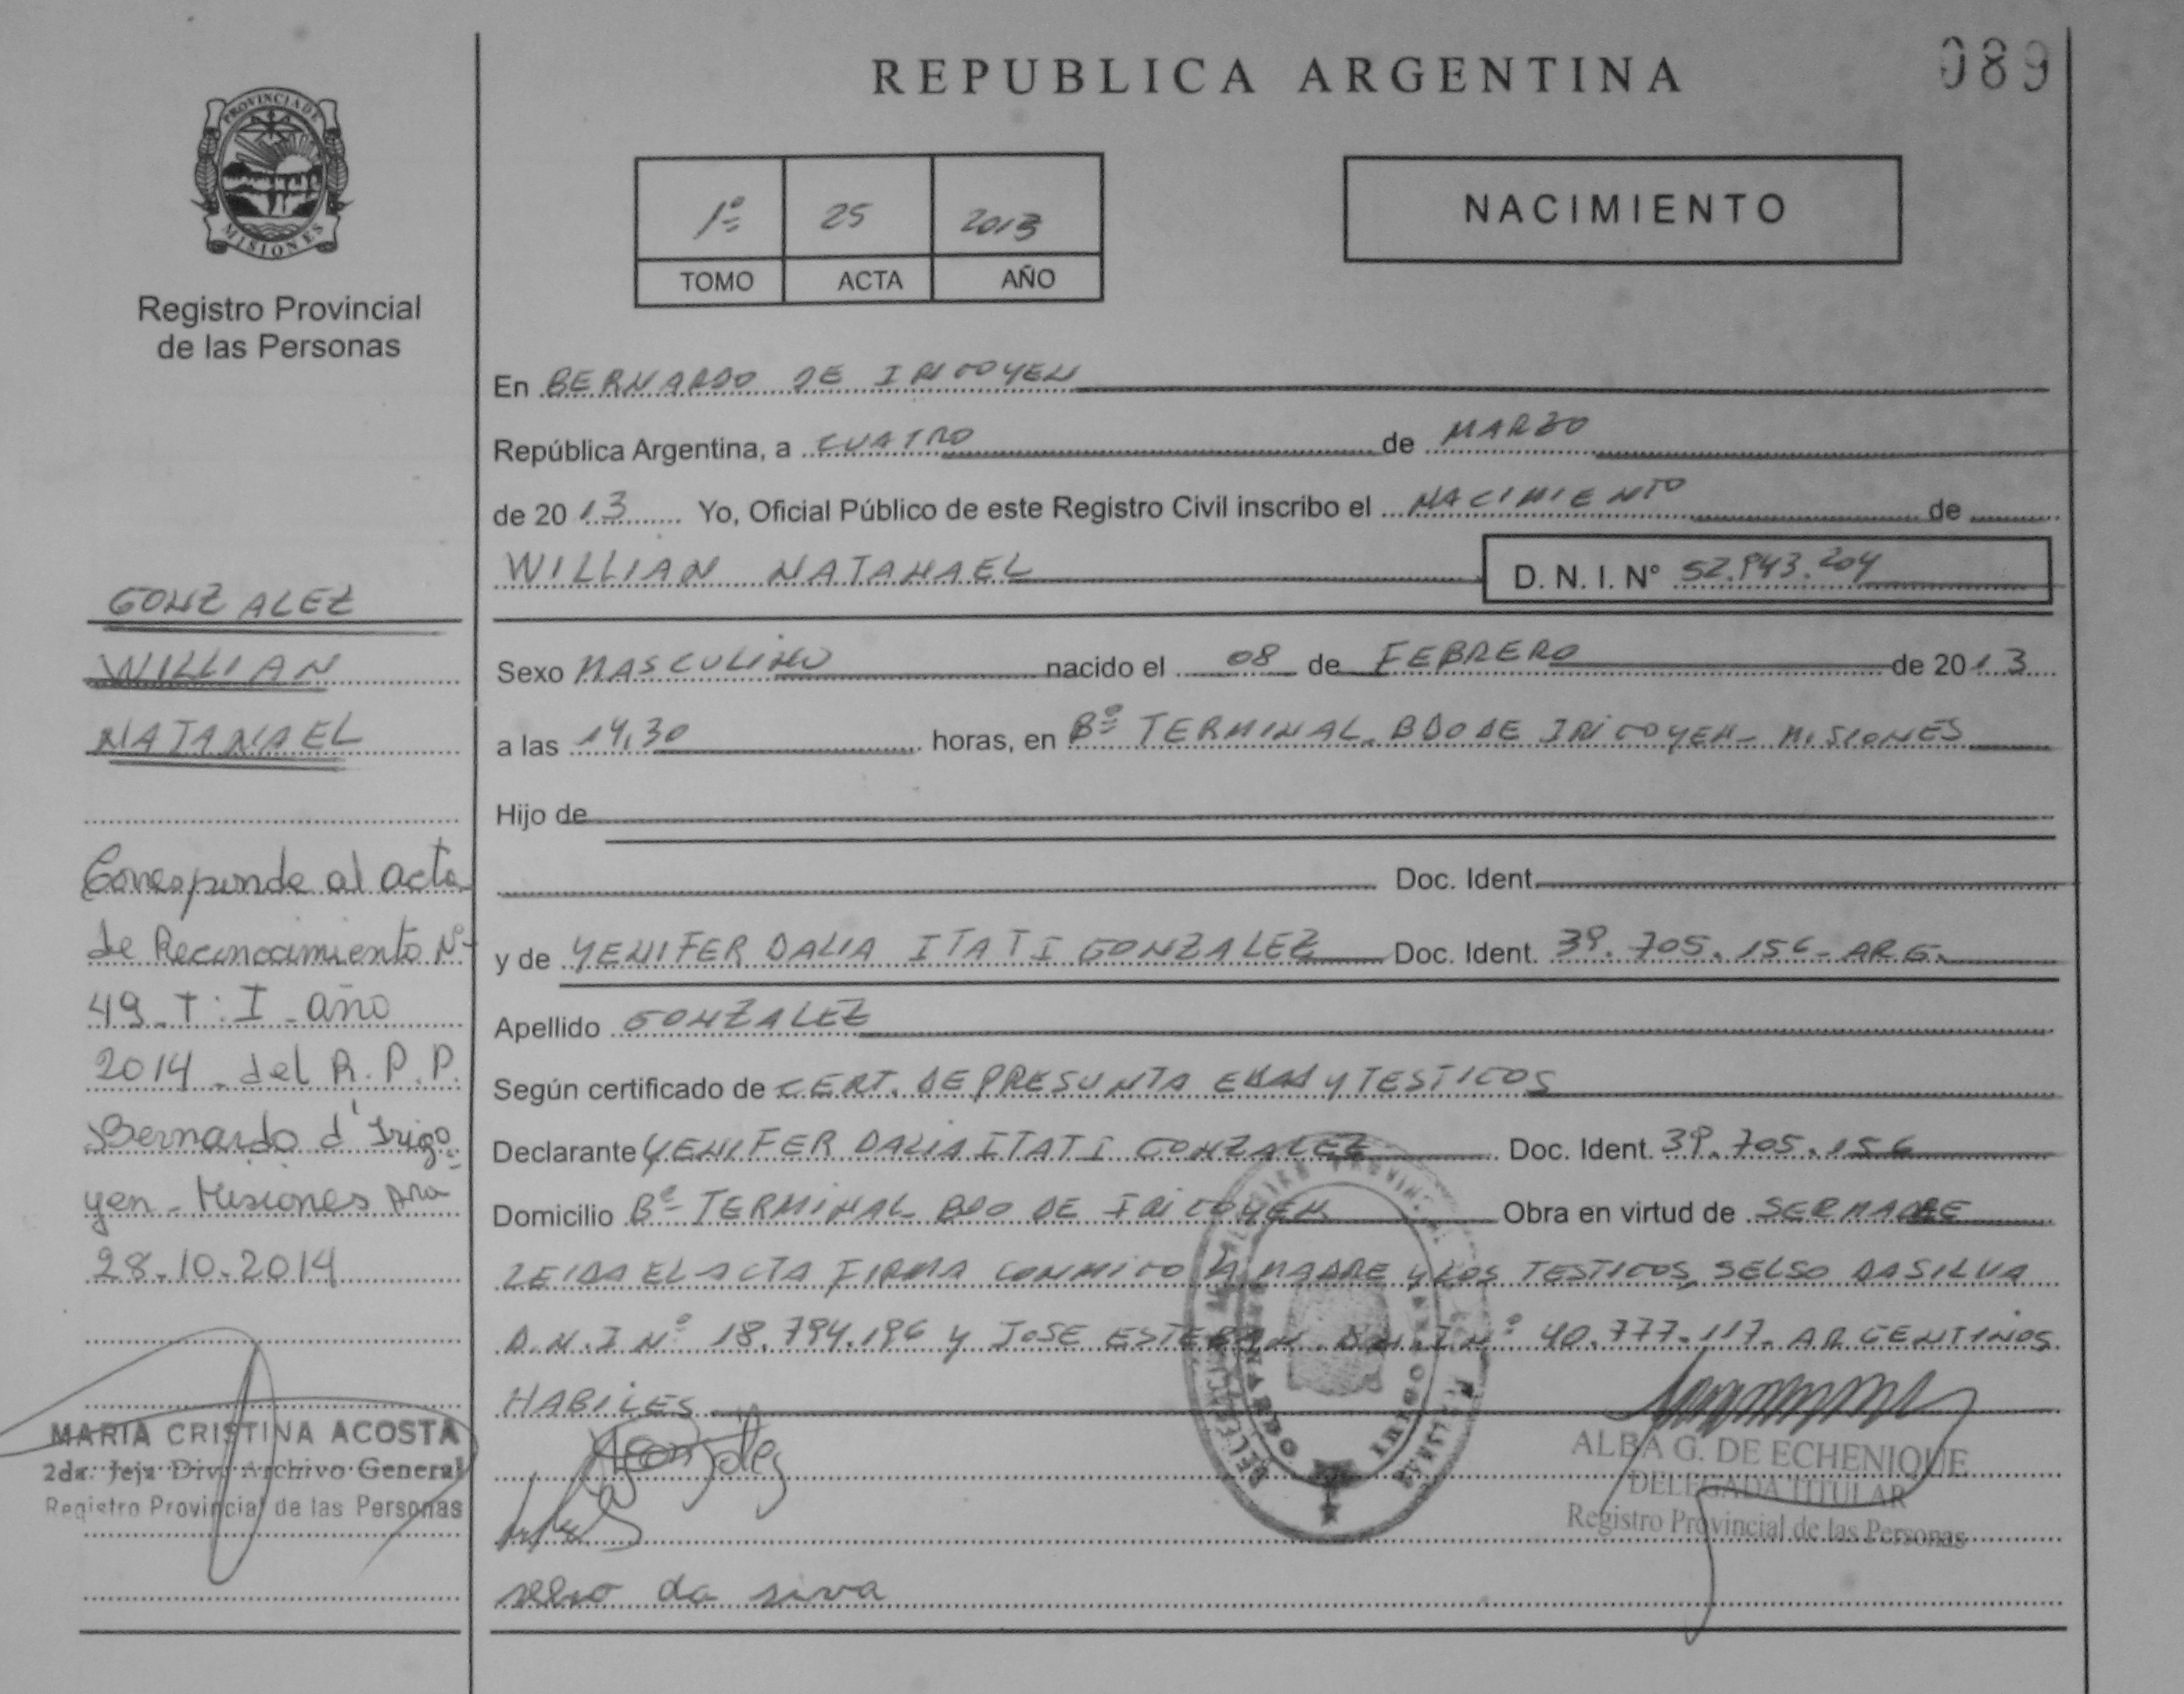 REPUBLICA ARGENTINA
089
PROVINCIA DE
MISIONES
Registro Provincial
de las Personas
1º 25 2013
TOMO ACTA AÑO
NACIMIENTO
En BERNARDO DE IRIGOYEN
República Argentina, a CUATRO de MARZO
de 2013 Yo, Oficial Público de este Registro Civil inscribo el NACIMIENTO de
WILLIAN NATANAEL D. N. I. Nº 52.943.204
Sexo MASCULINO nacido el 08 de FEBRERO de 2013
a las 14,30 horas, en Bº TERMINAL. BDO DE IRIGOYEN - MISIONES
Hijo de
Doc. Ident.
y de YENIFER DALIA ITATI GONZALEZ Doc. Ident. 39.705.156 - ARG.
Apellido GONZALEZ
Según certificado de CERT. DE PRESUNTA EDAD y TESTIGOS
Declarante YENIFER DALIA ITATI GONZALEZ Doc. Ident. 39.705.156
Domicilio Bº TERMINAL BDO DE IRIGOYEN Obra en virtud de SER MADRE
LEIDA EL ACTA FIRMA CONMIGO LA MADRE y LOS TESTIGOS, SELSO DA SILVA
D.N.I Nº 18.794.196 y JOSE ESTEBAN D.N.I Nº 40.777.117. ARGENTINOS
HABILES
ALBA G. DE ECHENIQUE
DELEGADA TITULAR
Registro Provincial de las Personas
GONZALEZ
WILLIAN
NATANAEL
Corresponde al acta
de Reconocimiento Nº
49 - T: I - año
2014 - del R.P.P.
Bernardo d' Irigo
yen - Misiones
28-10-2014
MARIA CRISTINA ACOSTA
2da. Jefa Div. Archivo General
Registro Provincial de las Personas